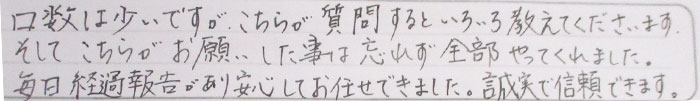 口数は少いですが、こちらが質問するといろいろ教えてくださいます。
そしてこちらがお願いした事は忘れず全部やってくれました。
毎日経過報告があり安心してお任せできました。誠実で信頼できます。